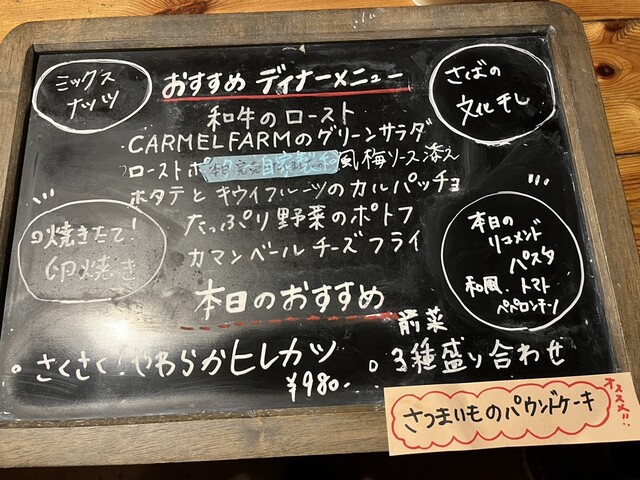 ミックス
ナッツ
おすすめ ディナーメニュー
さばの
文化干し
和牛のロースト
CARMELFARMのグリーンサラダ
ローストポ
本日完売
風梅ソース添え
ホタテとキウイフルーツのカルパッチョ
たっぷり野菜のポトフ
カマンベールチーズフライ
焼きたて!
卵焼き
本日の
リコメンド
パスタ
和風、トマト
ペペロンチーノ
本日のおすすめ
さくさく!やわらかヒレカツ
¥980.-
前菜
3種盛り合わせ
さつまいものパウンドケーキ
オススメ!!